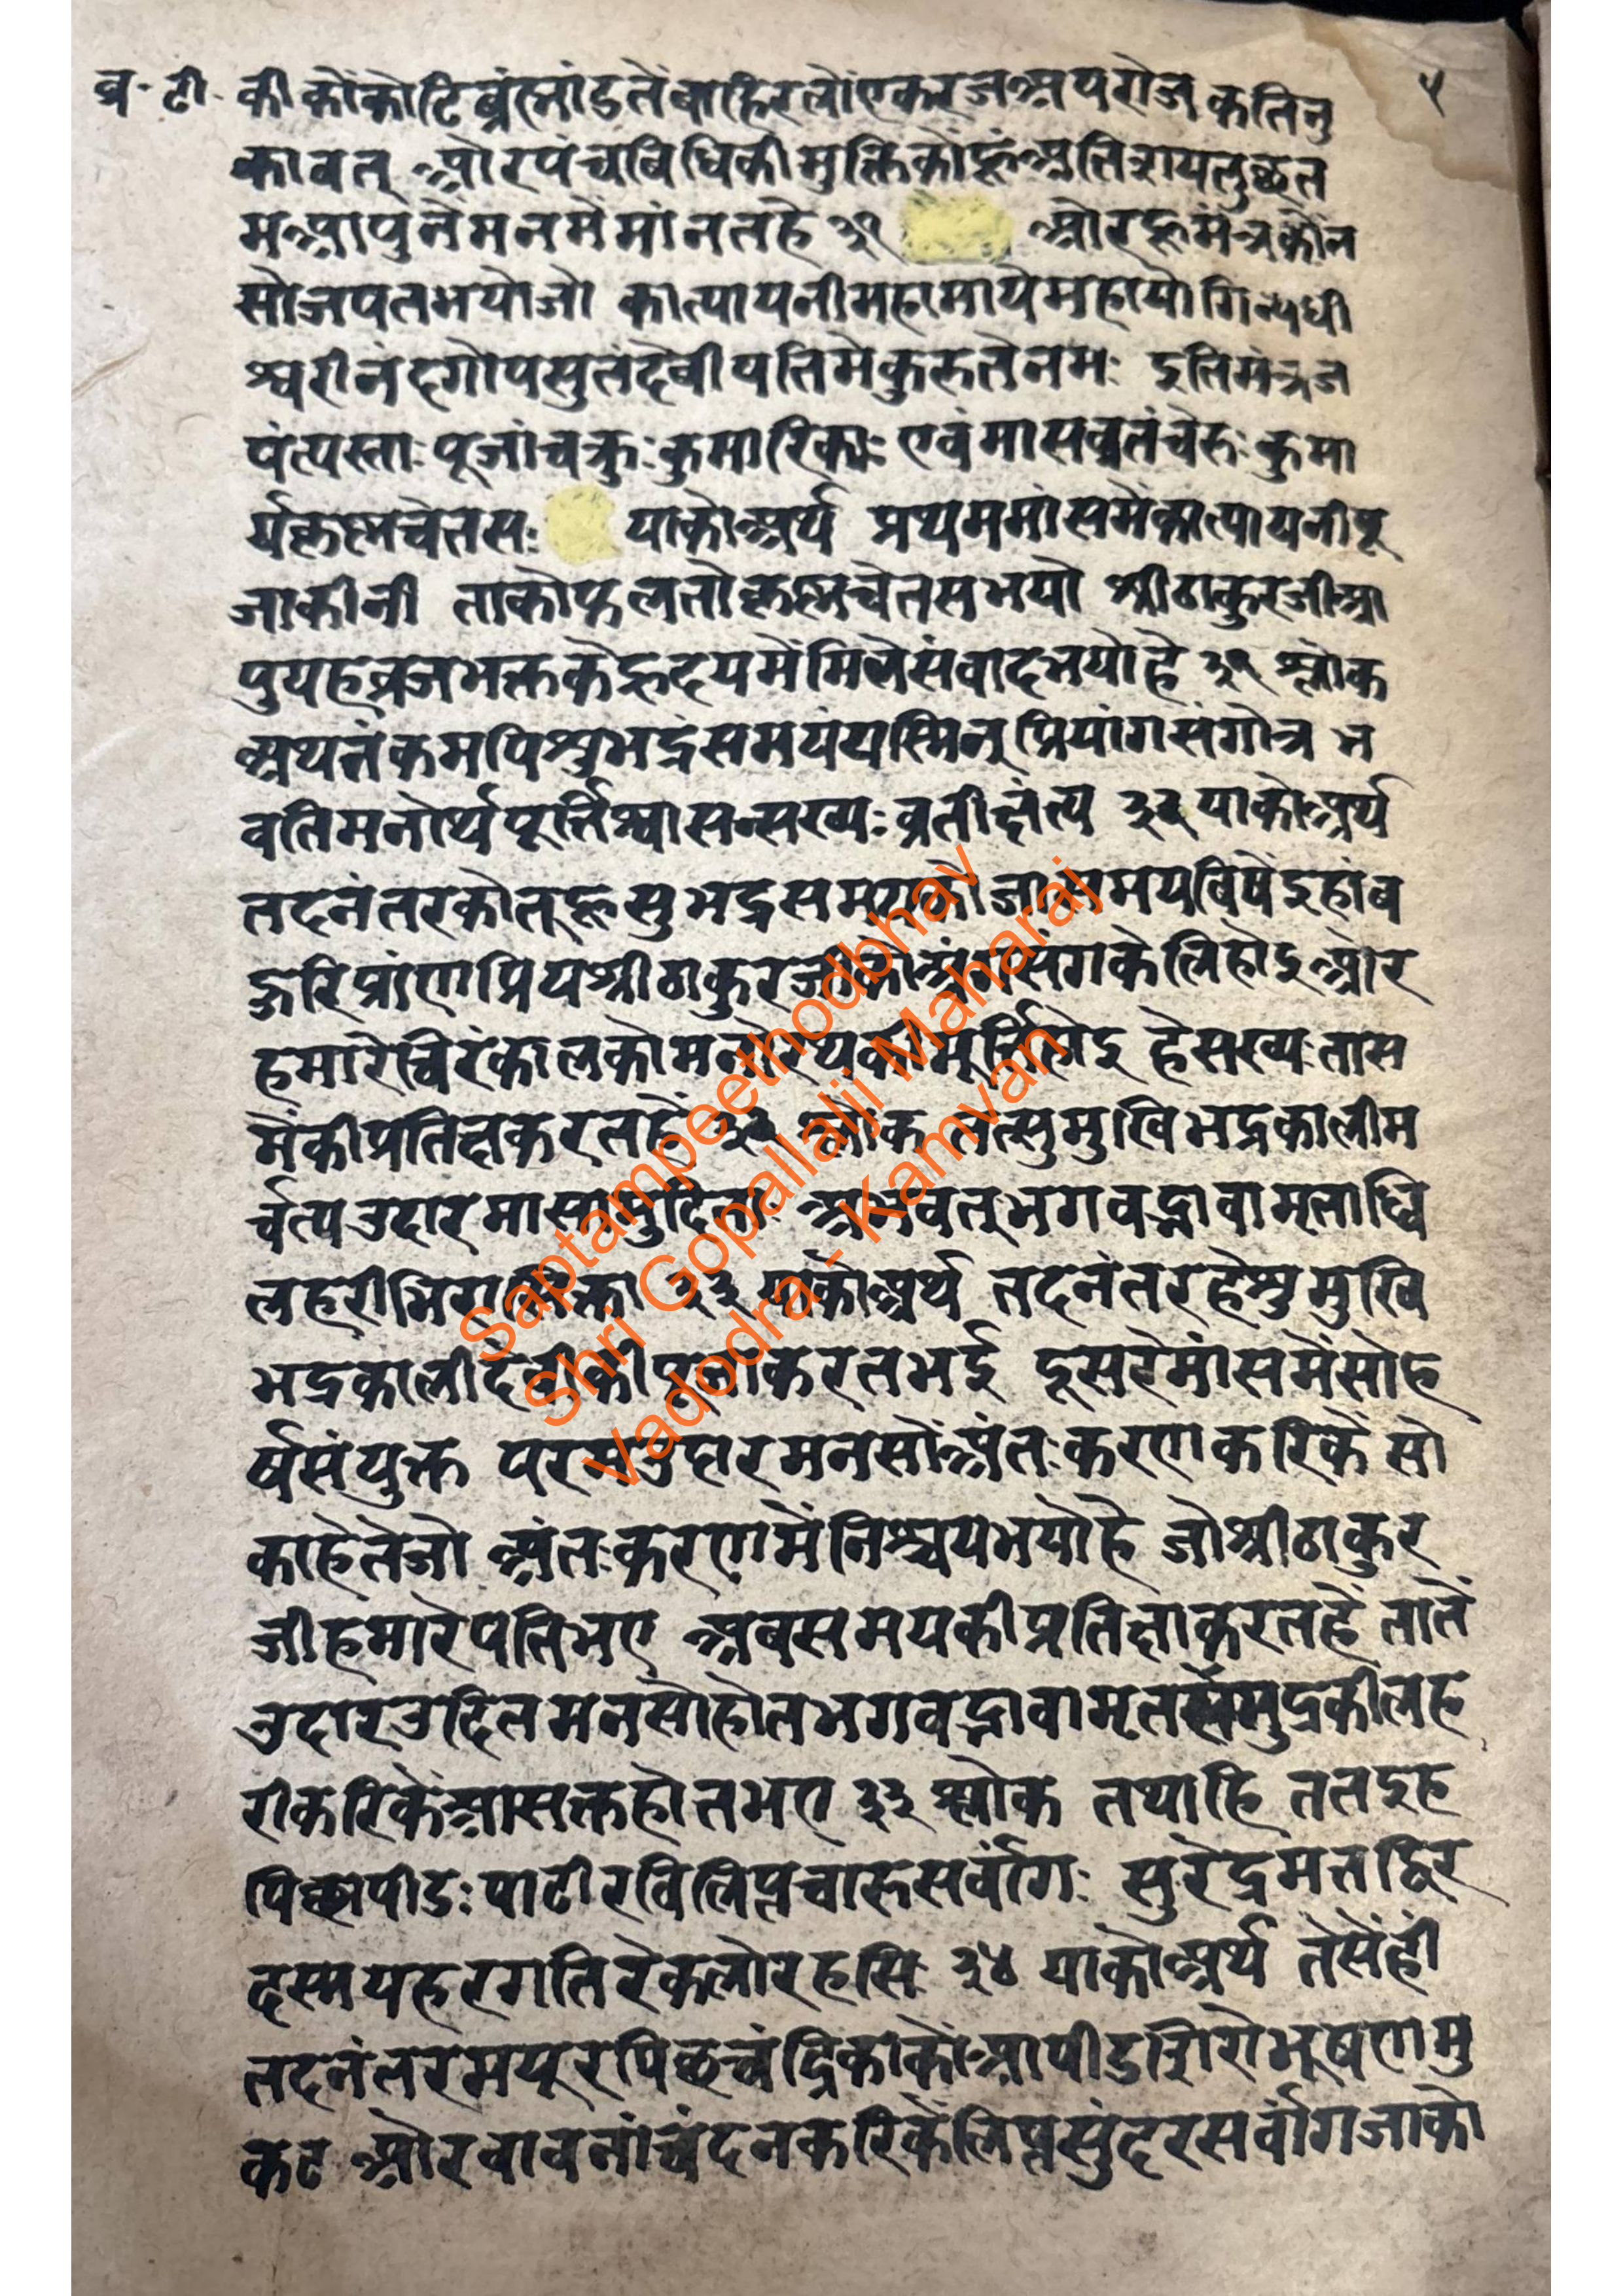 व्र॰टी॰ ५
की कोंकोटिब्रंह्मांडतेंबाहिरलोंएकरजअपरोजकतिनु
कावत् औरपंचबिधिकीमुक्तिकोंहूंअतिशयतुछत
मआपुनेंमनमेंमांनतहे ३१ औरहूमंत्रकोंन
सोजपतभयोजो कात्यायनीमहामायेमहायोगिन्यधी
श्वरीनंदगोपसुतंदेवीपतिमेकुरुतेनमः इतिमंत्रज
पंत्यस्ताः पूजांचक्रुः कुमारिकाः एवंमासव्रतंचेरुः कुमा
र्यकृष्णचेतसः याकोअर्थ प्रथममांसमेंकात्यायनीपू
जाकीनी ताकोफलतोकृष्णचेतसभयो श्रीठाकुरजीआ
पुयहव्रजभक्तकेहृदयमेंमिलेसंवादभयोहे ३१ श्लोक
अथतंकमपिशुभद्रंसमयंयस्मिनुप्रियांगसंगोत्र भ
वतिमनोर्थपूर्त्तिश्चासन्सख्यः व्रतीक्षंत्य ३२ याकोअर्थ
तदनंतरकोतूहूसुभद्रसमयकोजासमयबिषेंइहांब
हूरिप्रांणप्रियश्रीठाकुरजीकोअंगसंगकेलिहोइऔर
हमारेचिरंकालकोमनोरथकीपूर्त्तिहोइ हेसख्यः तास
मेंकीप्रतिक्षकरतहें ३२ श्लोक तत्सुमुखिभद्रकालीम
र्चत्यउदारमासामुदिताः अभवत्भगवद्भावामृताब्धि
लहरीभिरासिक्ता ३३ याकोअर्थ तदनंतरहेशुमुखि
भद्रकालीदेवीकीपूजाकरतभई दूसरेमांसमेंसोह
र्षसंयुक्त परमउदारमनसोंअंतःकरणकरिकें सो
काहेतेजो अंतःकरणमेंनिश्चयभयोहै जोश्रीठाकुर
जीहमारेपतिभए अबसमयकीप्रतिक्षाकरतहें तातें
उदारउदितमनसोहोतभगवद्भावामृतसमुद्रकीलह
रीकरिकेंआसक्तहोतभए ३३ श्लोक तथाहि ततइह
पिछापीडः पाटीरविलिप्तचारुसर्वांगः सुरेंद्रमत्तद्विर
दस्मयहरगतिरेकलोरहसि ३४ याकोअर्थ तेसेंहीं
तदनंतरमयूरपिछचंद्रिकाकोआपीडशिरोभूषणमु
कट औरबावनाचंदनकरिकेंलिप्तसुंदरसर्वांगजाको
Saptampeethodbhav
Shri Gopallalji Maharaj
Vadodra - Kamvan